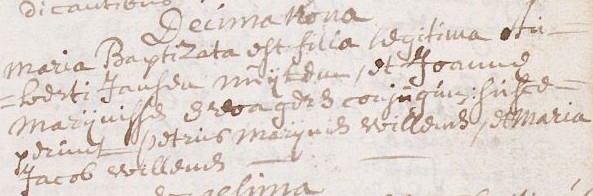 dicantibus
Decima Nona
Maria Baptizata est filia legitima Hu-
=berti Jansen Mijten / et Joanne
Marijnissen conjugum: susce-
perunt Petrus Marijnis Willems / et Maria
Jacob Willems